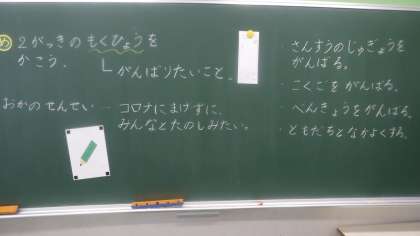 め 2がっきのもくひょうを
かこう。
がんばりたいこと。
おかのせんせい…コロナにまけずに、
みんなとたのしみたい。
・さんすうのじゅぎょうを
がんばる。
・こくごをがんばる。
・べんきょうをがんばる。
・ともだちとなかよくする。